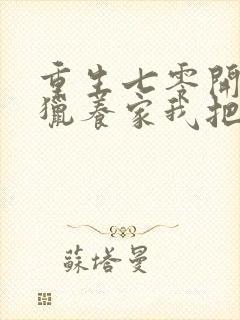 重生七零開
獵養家我把
蘇塔曼